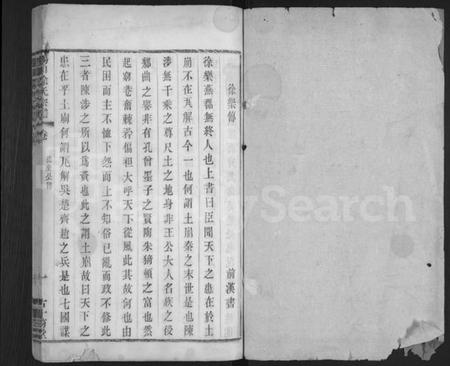 徐樂傳
前漢書
徐樂燕郡無終人也上書曰臣聞天下之患在於土
崩不在瓦解古今一也何謂土崩秦之末世是也陳
涉無千乘之尊尺土之地身非王公大人名族之後
鄉曲之譽非有孔曾墨子之賢陶朱猗頓之富也然
起窮巷奮棘矜偏袒大呼天下從風此其故何也由
民困而主不恤下怨而上不知俗已亂而政不修此
三者陳涉之所以為資也此之謂土崩故曰天下之
患在乎土崩何謂瓦解吳楚齊趙之兵是也七國謀
MySearch